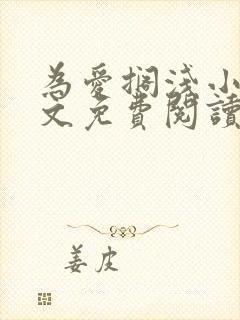 為愛擱淺小
文免費閱讀
姜皮